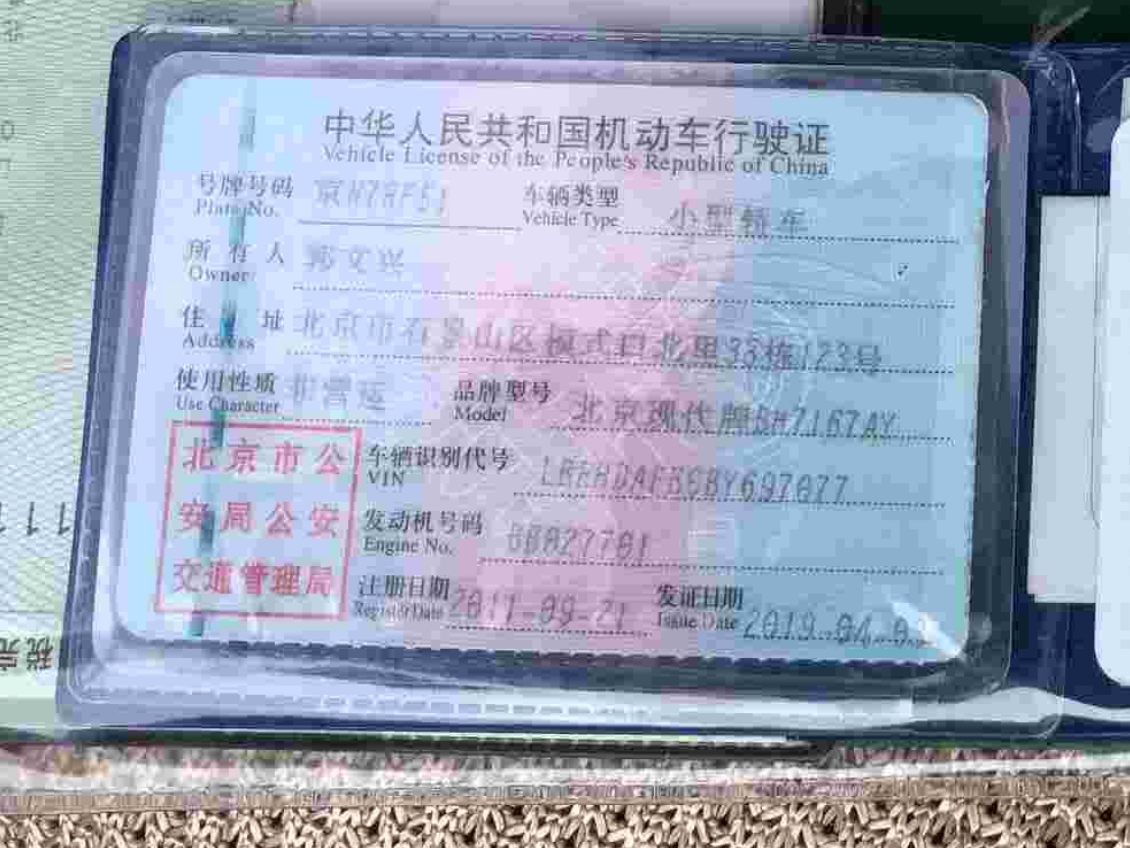 中华人民共和国机动车行驶证
Vehicle License of the People's Republic of China
号牌号码
Plate No.
车辆类型 小型轿车
Vehicle Type
所有人 郭文兴
Owner
住址 北京市石景山区模式口北里33栋123号
Address
使用性质 非营运
Use Character
品牌型号 北京现代牌BH7167AY
Model
北京市公
安局公安
交通管理局
车辆识别代号
VIN
发动机号码
Engine No.
注册日期 2011-09-21
Register Date
发证日期
Issue Date